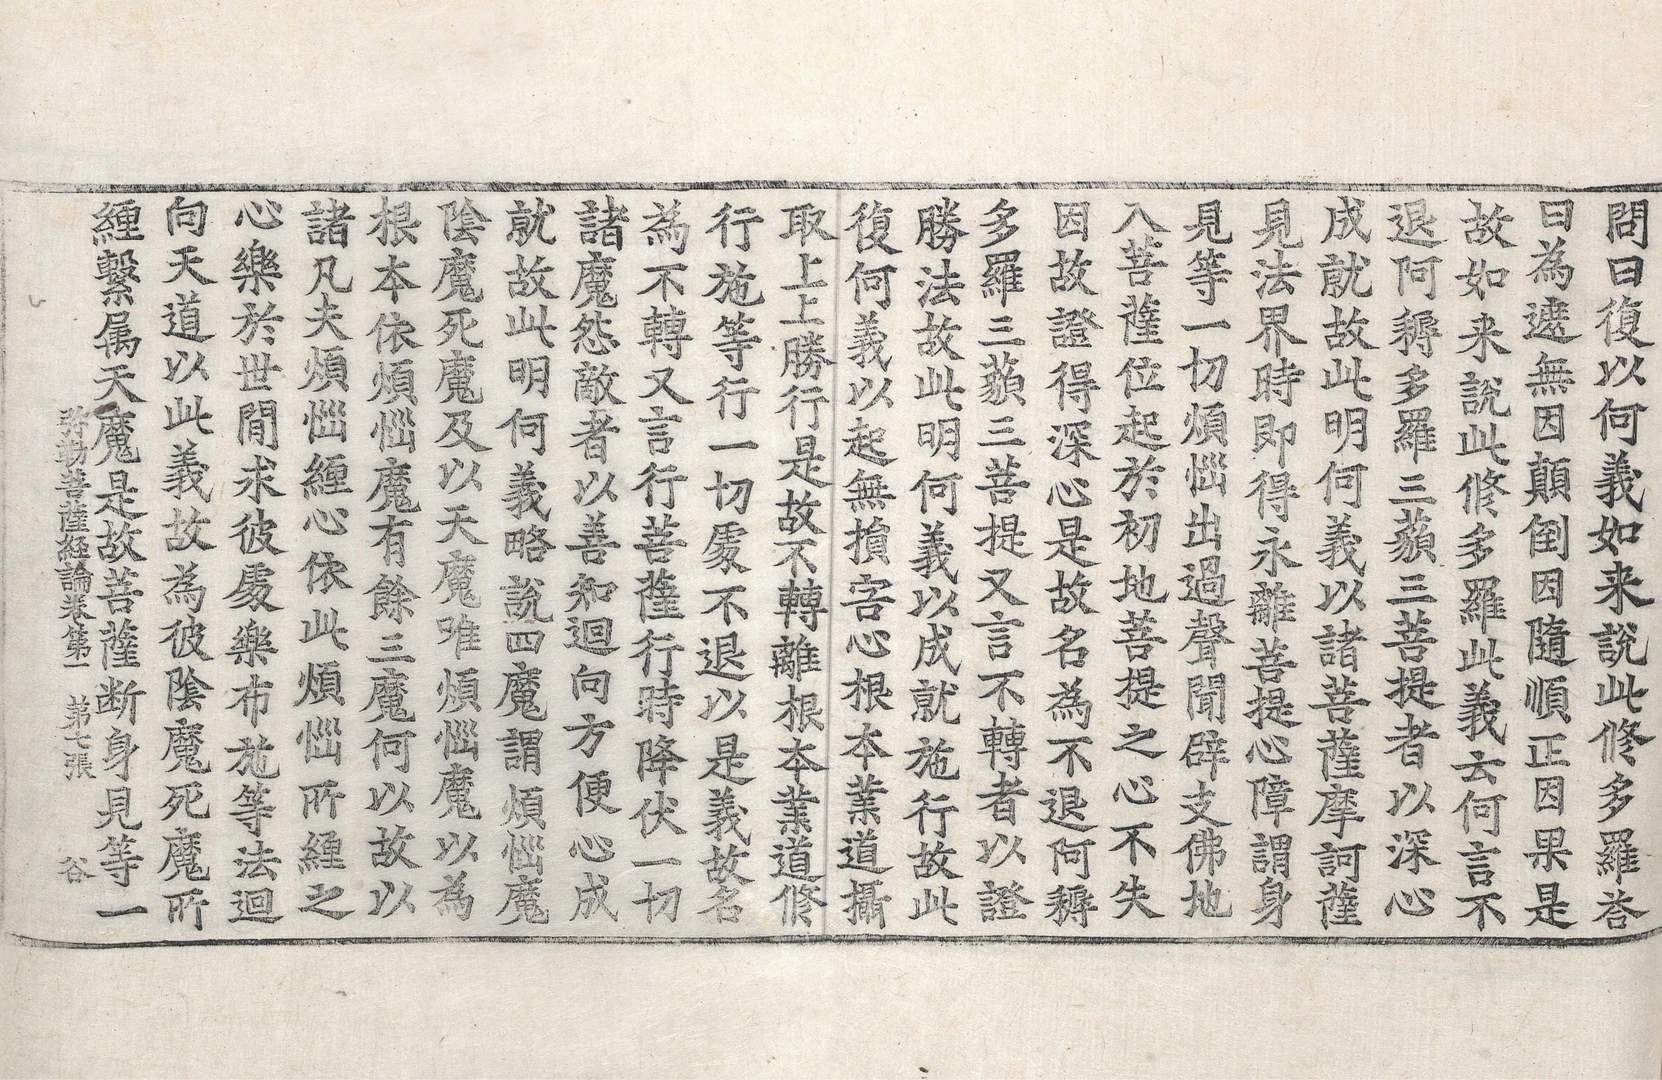 問曰復以何義如来說此修多羅荅
曰為遮無因顛倒因隨順正因果是
故如来說此修多羅此義云何言不
退阿耨多羅三藐三菩提者以深心
成就故此明何義以諸菩薩摩訶薩
見法界時即得永離菩提心障謂身
見等一切煩惱出過聲聞辟支佛地
入菩薩位起於初地菩提之心不失
因故證得深心是故名為不退阿耨
多羅三藐三菩提又言不轉者以證
勝法故此明何義以成就施行故此
復何義以起無損害心根本業道攝
取上上勝行是故不轉離根本業道修
行施等行一切處不退以是義故名
為不轉又言行菩薩行時降伏一切
諸魔怨敵者以善知迴向方便心成
就故此明何義略說四魔謂煩惱魔
陰魔死魔及以天魔唯煩惱魔以為
根本依煩惱魔有餘三魔何以故以
諸凡夫煩惱纏心依此煩惱所纏之
心樂於世間求彼處樂布施等法迴
向天道以此義故為彼陰魔死魔所
纏繫属天魔是故菩薩断身見等一
弥勒菩薩経論卷第一　第七張　谷